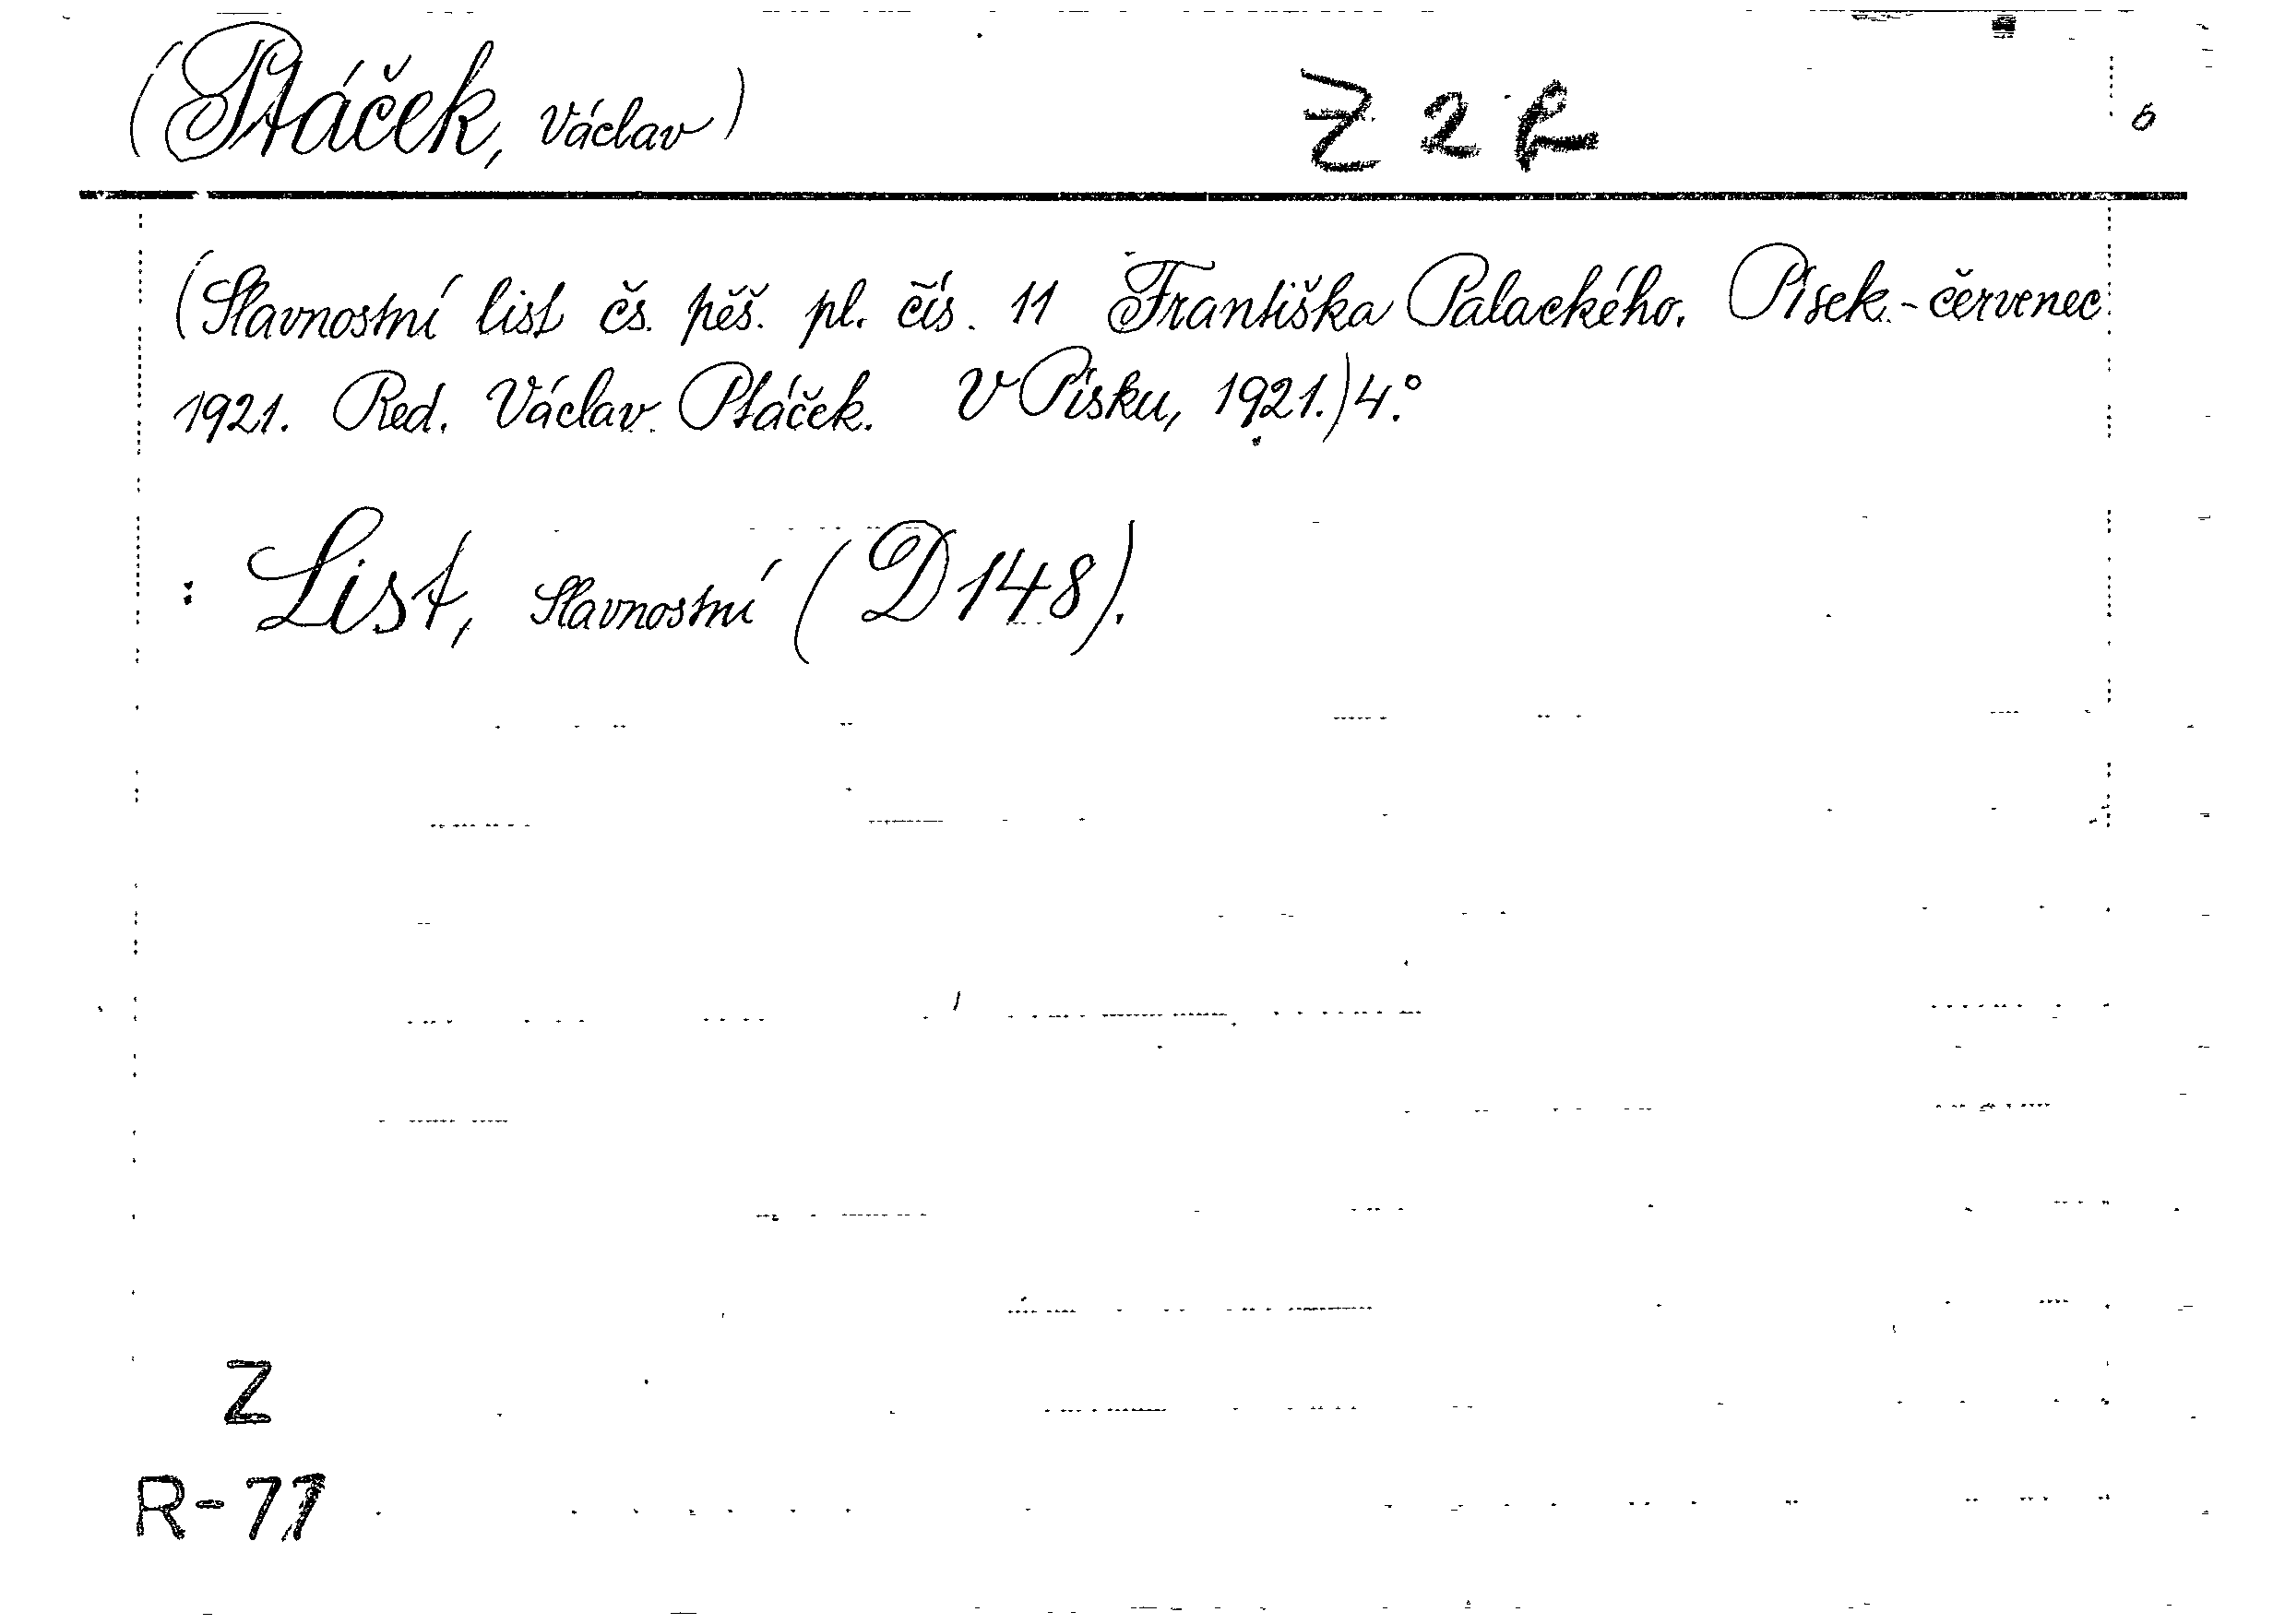 (Ptáček, Václav) Z 2 R 6
(Slavnostní list čs. pěš. pl. čís. 11 Františka Palackého. Písek - červenec
1921. Red. Václav Ptáček. V Písku, 1921.) 4.°
: List, Slavnostní (D 148).
Z
R-77